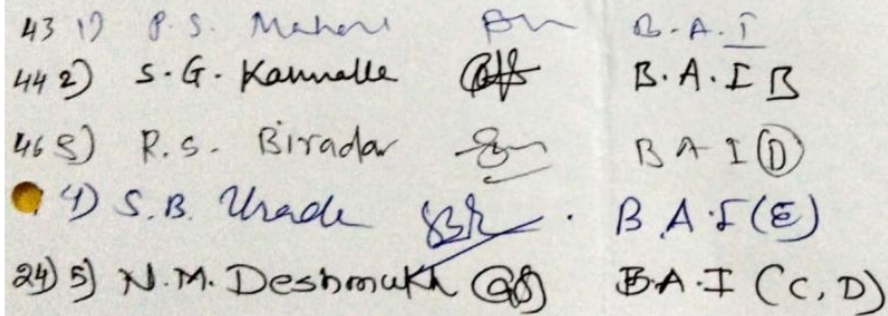 43 1) P. S. B. A. I
44 2) S. G. Kannalle B. A. I B
46 3) R. S. Biradar B A I (D)
4) S. B. Urade B. A. I (E)
24) 5) N. M. Deshmukh B. A. I (C, D)